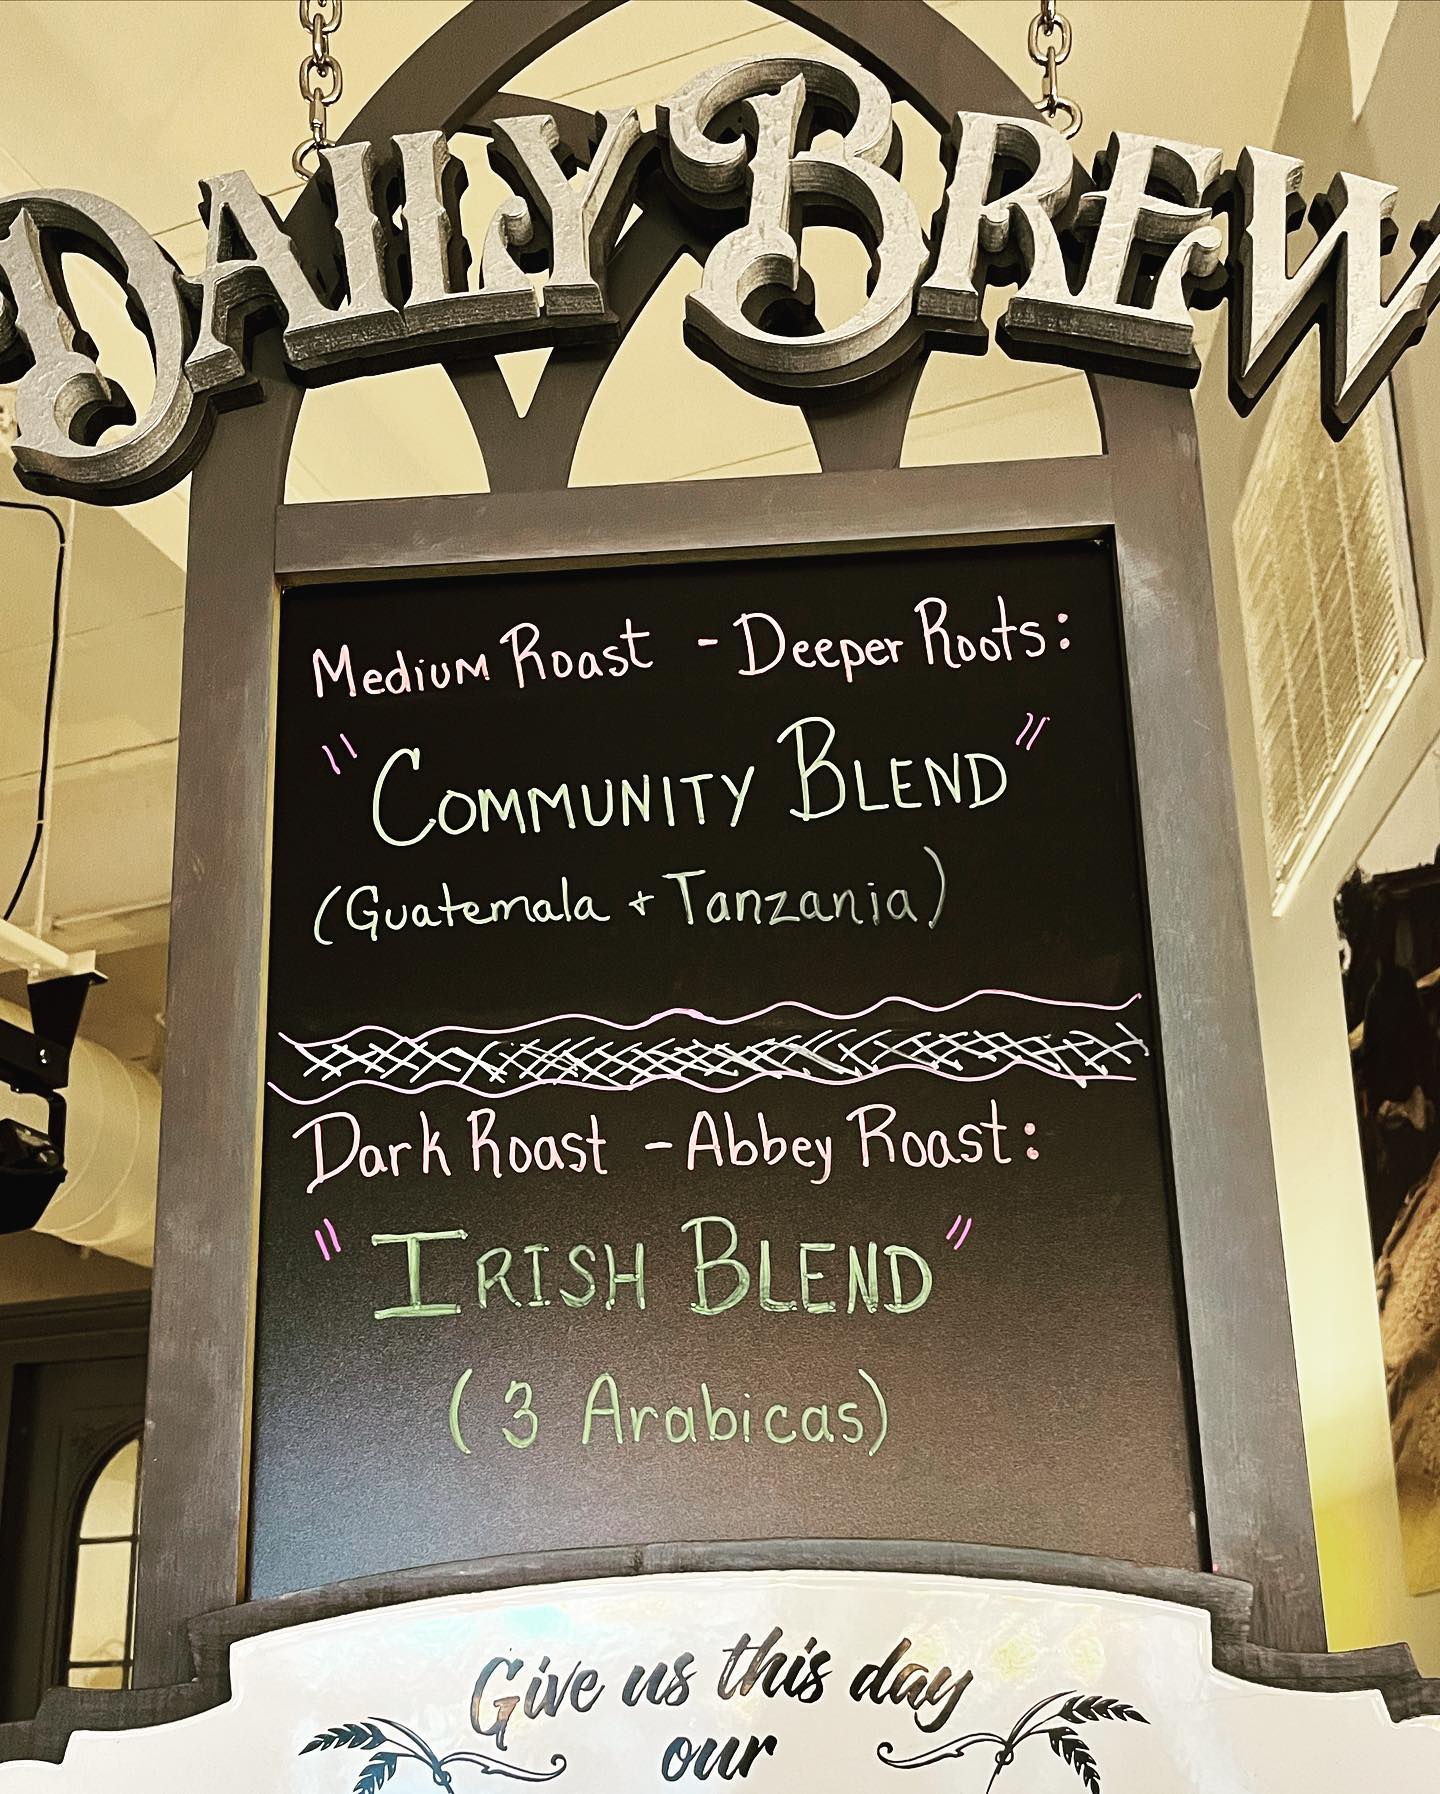 DAILY BREW
Medium Roast - Deeper Roots:
"COMMUNITY BLEND"
(Guatemala + Tanzania)
Dark Roast - Abbey Roast:
"IRISH BLEND"
(3 Arabicas)
Give us this day
our